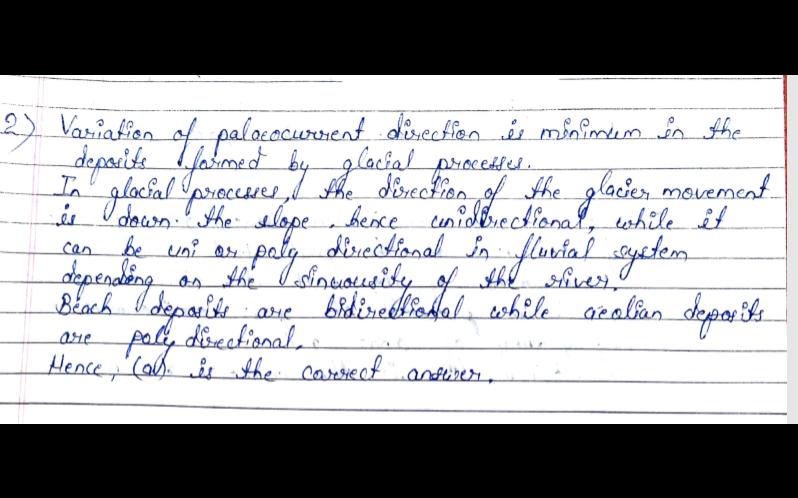 2) Variation of palaeocurrent direction is minimum in the
deposits formed by glacial processes.
In glacial processes, the direction of the glacier movement
is down the slope, hence unidirectional, while it
can be uni or poly directional in fluvial system
depending on the sinuousity of the river.
Beach deposits are bidirectional while aeolian deposits
are poly directional.
Hence, (a) is the correct answer.